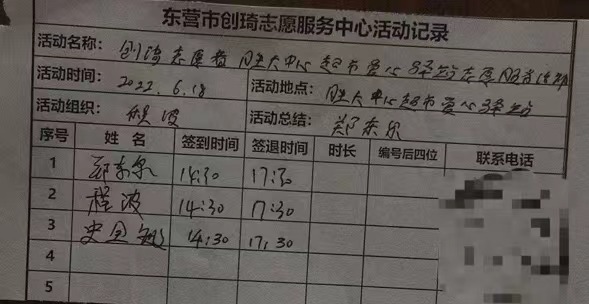 东营市创琦志愿服务中心活动记录
活动名称: 创琦志愿者 胜大中心超市爱心驿站志愿服务活动
活动时间: 2022.6.18 活动地点: 胜大中心超市爱心驿站
活动组织: 程波 活动总结: 郑东泉
序号 姓名 签到时间 签退时间 时长 编号后四位 联系电话
1 郑东泉 14:30 17:30
2 程波 14:30 17:30
3 史全敏 14:30 17:30
4
5